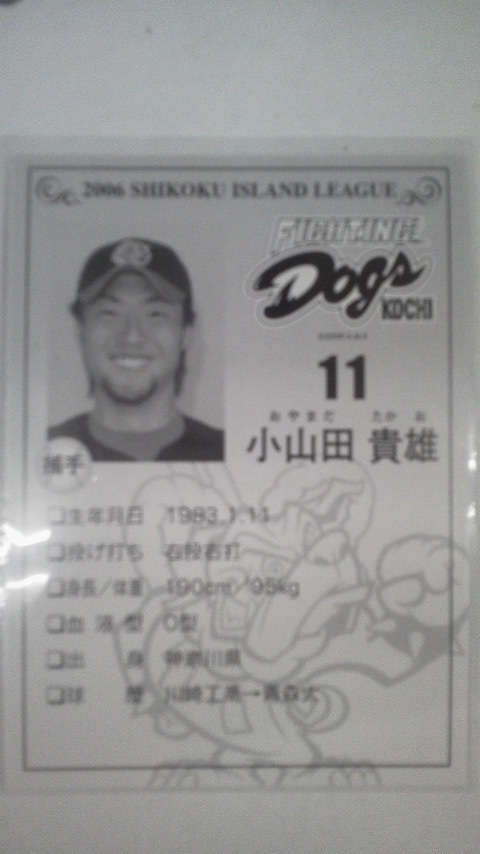 2006 SHIKOKU ISLAND LEAGUE
FIGHTING
Dogs
KOCHI
11
おやまだ たかお
小山田 貴雄
捕手
❏生年月日 1983.1.11
❏投げ打ち 右投右打
❏身長/体重 190cm/95kg
❏血液型 O型
❏出身 神奈川県
❏球歴 川崎工高→青森大